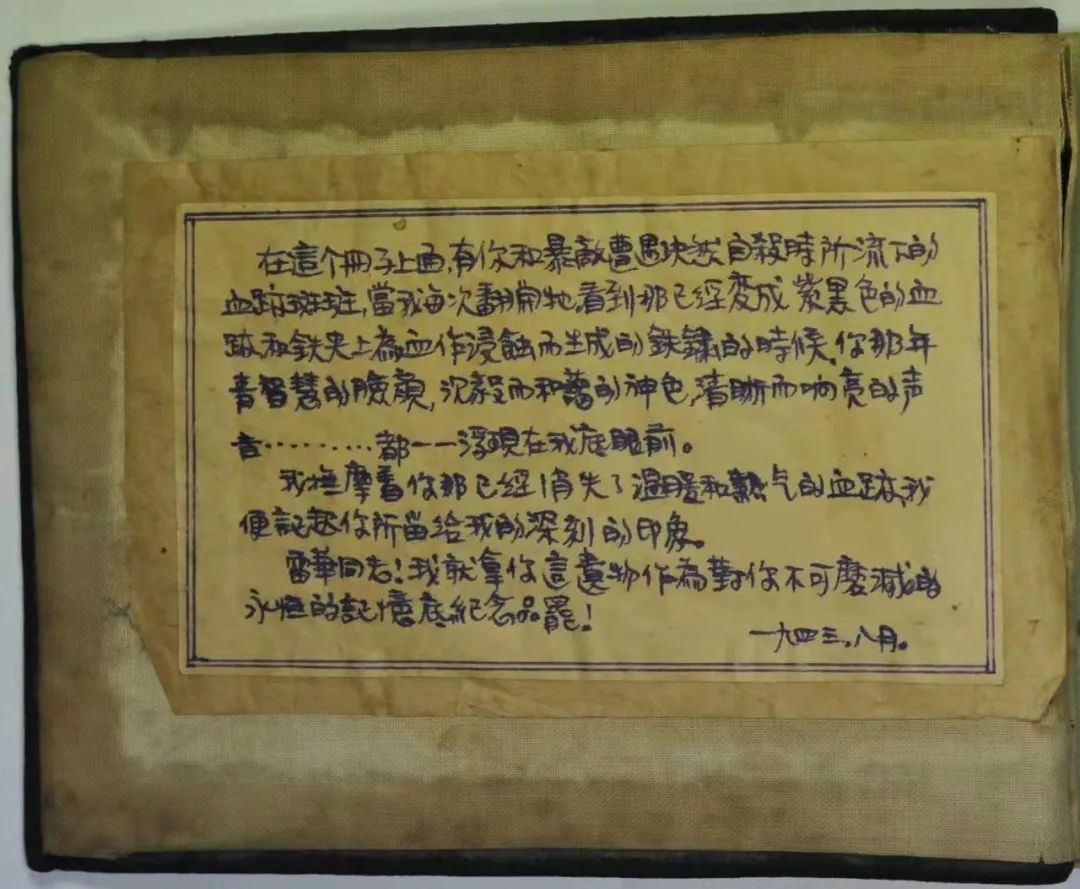 在這个冊子上面,有你和暴敵遭遇决然自殺時所流下的
血跡斑斑,當我每次翻開牠看到那已經变成紫黑色的血
跡和鉄夾上為血作浸蝕而生成的鉄鏽的時候、你那年
青智慧的臉顏,沉毅而和藹的神色,清晰而响亮的声
音………都一一浮現在我底眼前。
我撫摩着你那已經消失了温暖和熱气的血跡,我
便記起你所留給我的深刻的印象。
雷華同志!我就拿你這遺物作為對你不可磨滅的
永恒的記憶底紀念品罷!
一九四三.八月。